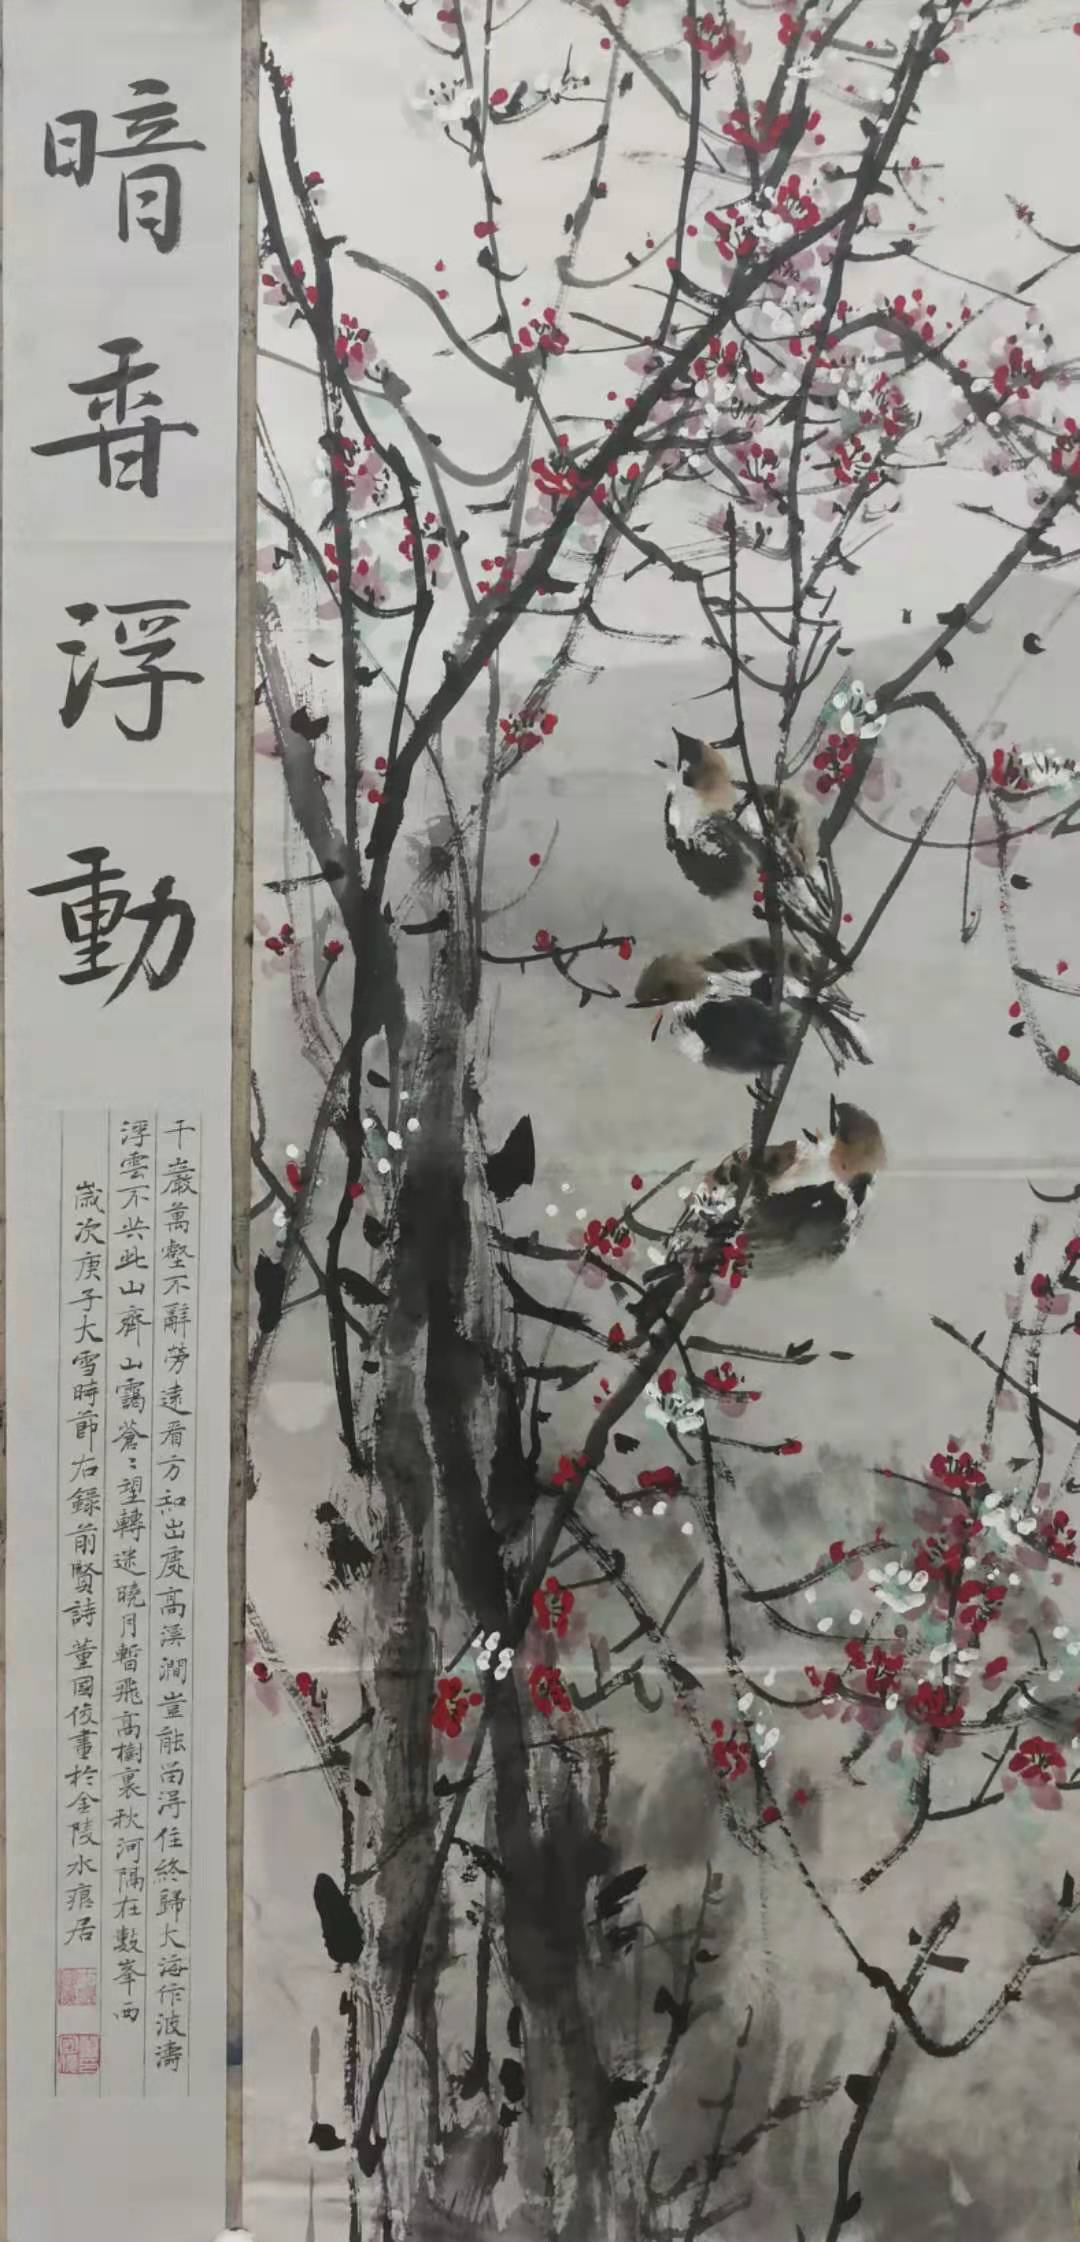 暗香浮動
千巖萬壑不辭勞遠看方知出處高溪澗豈能留得住終歸大海作波濤
浮雲不共此山齊山靄蒼〻望轉迷曉月暫飛高樹裏秋河隔在數峯西
歲次庚子大雪時節右錄前賢詩董國俊畫於金陵水痕居